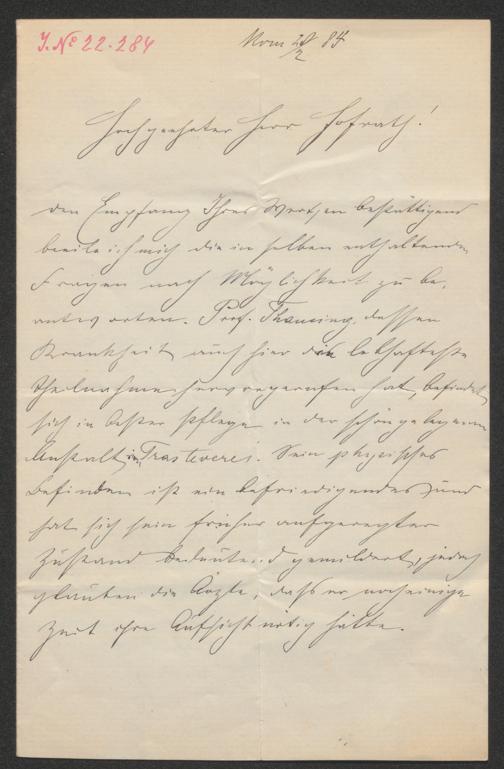 J. № 22.284
Rom 27/2 84
Hochgeehrter Herr Hofrath!
den Empfang Ihres Werthen bestättigend
beeile ich mich die in selben enthaltenden
Fragen nach Möglichkeit zu be-
antworten. Prof. Thausing, dessen
Krankheit auch hier die lebhafteste
Theilnahme hervorgerufen hat, befindet
sich in bester Pflege in der schöngelegenen
Anstalt in Trastevere. Sein physisches
Befinden ist ein befriedigendes und
hat sich sein früher aufgeregter
Zustand bedeutend gemildert, jedoch
glauben die Ärzte, daß er noch einige
Zeit ihre Aufsicht nötig hätte.